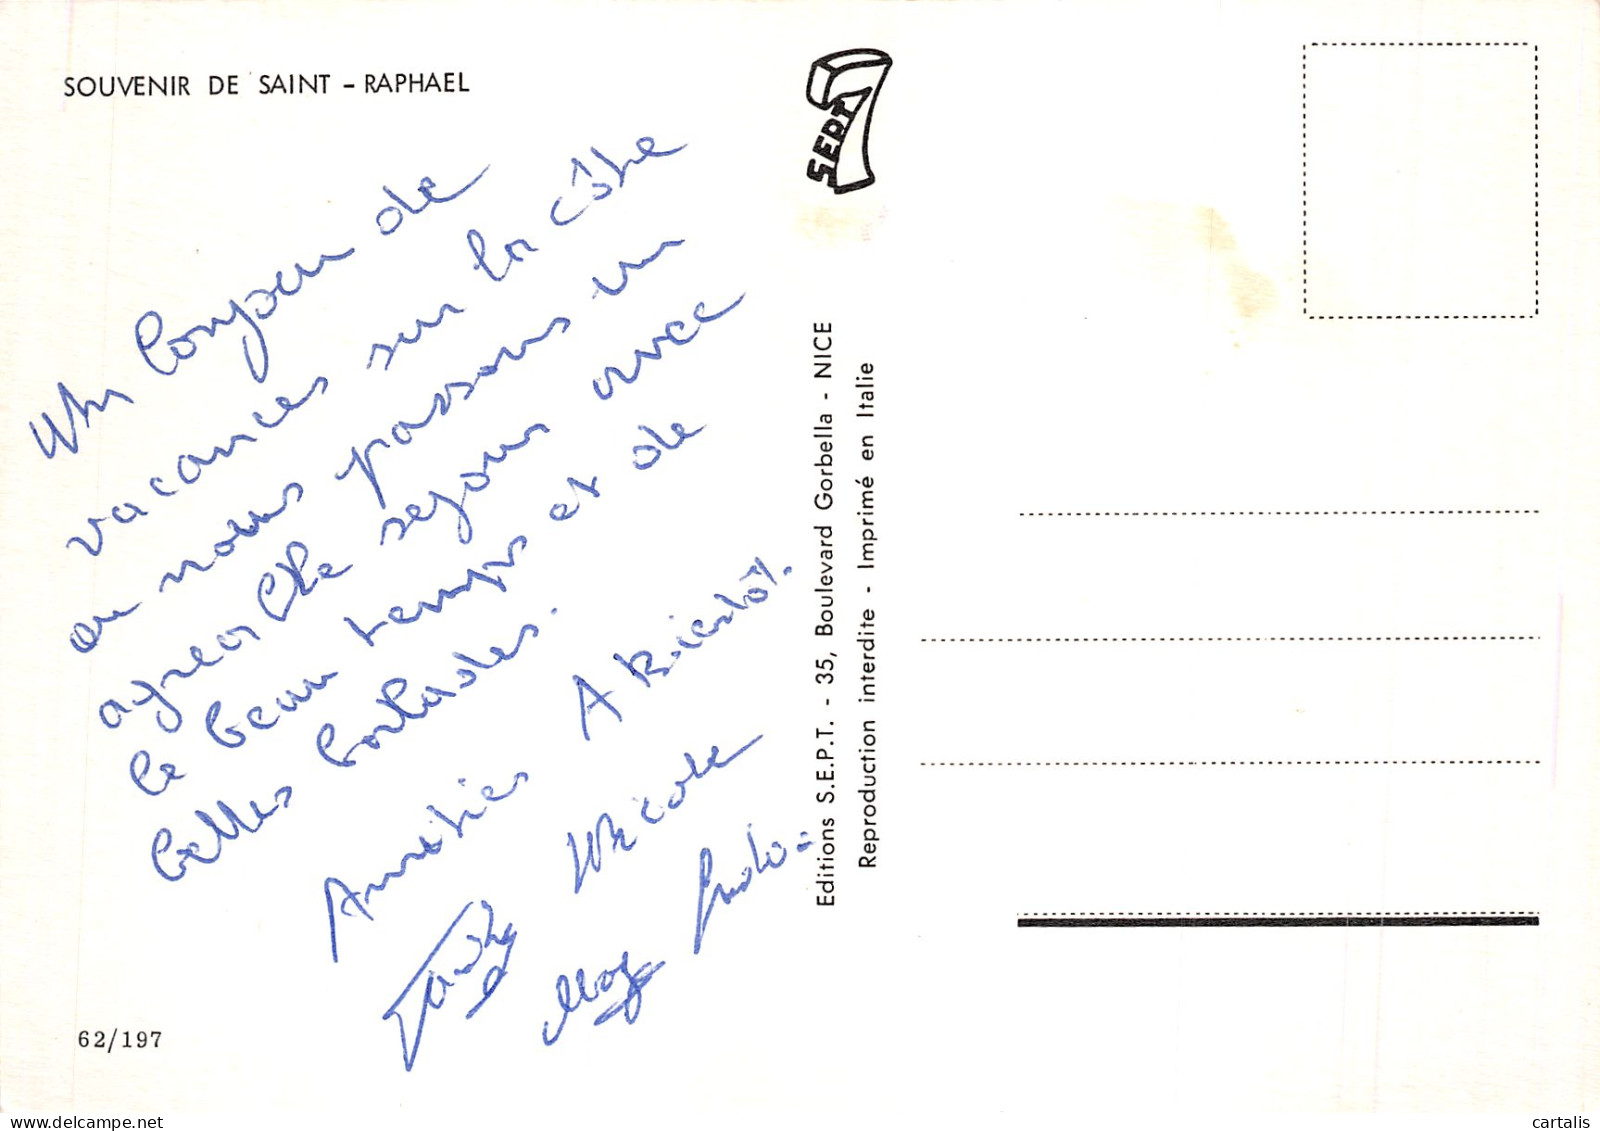 SOUVENIR DE SAINT - RAPHAEL
SEPT
7
Un bonjour de
vacances sur la côte
ou nous passons un
agreable sejour avec
le beau temps et de
belles balades.
Amitiés A Bientôt.
Nicole
62/197
Editions S.E.P.T. - 35, Boulevard Gorbella - NICE
Reproduction interdite - Imprimé en Italie
cartalis